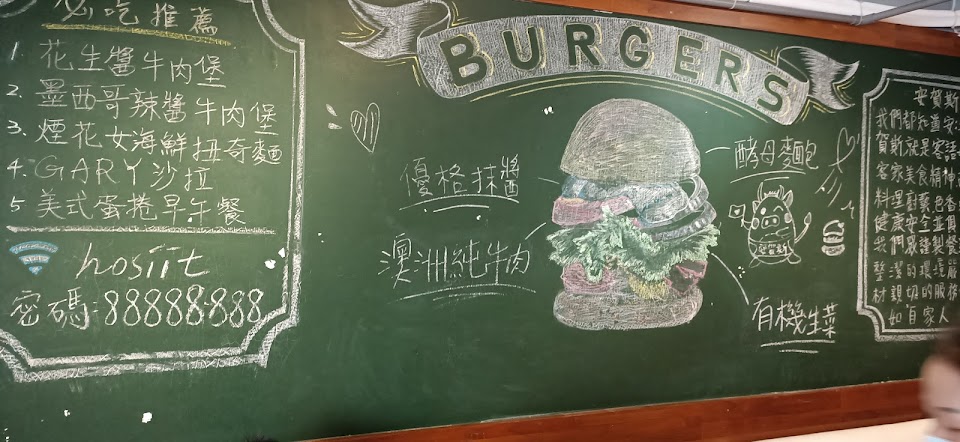 必吃推薦
1 花生醬牛肉堡
2. 墨西哥辣醬牛肉堡
3. 煙花女海鮮扭奇麵
4. GARY沙拉
5 美式蛋捲早午餐
hosiit
密碼:88888888
BURGERS
優格抹醬
澳洲純牛肉
酵母麵包
有機生菜
安賀斯
我們都知道安
賀斯就是客語
客家美食精神
料理
健康安全
出們感
整潔的環境
材親切的服務
如自家人